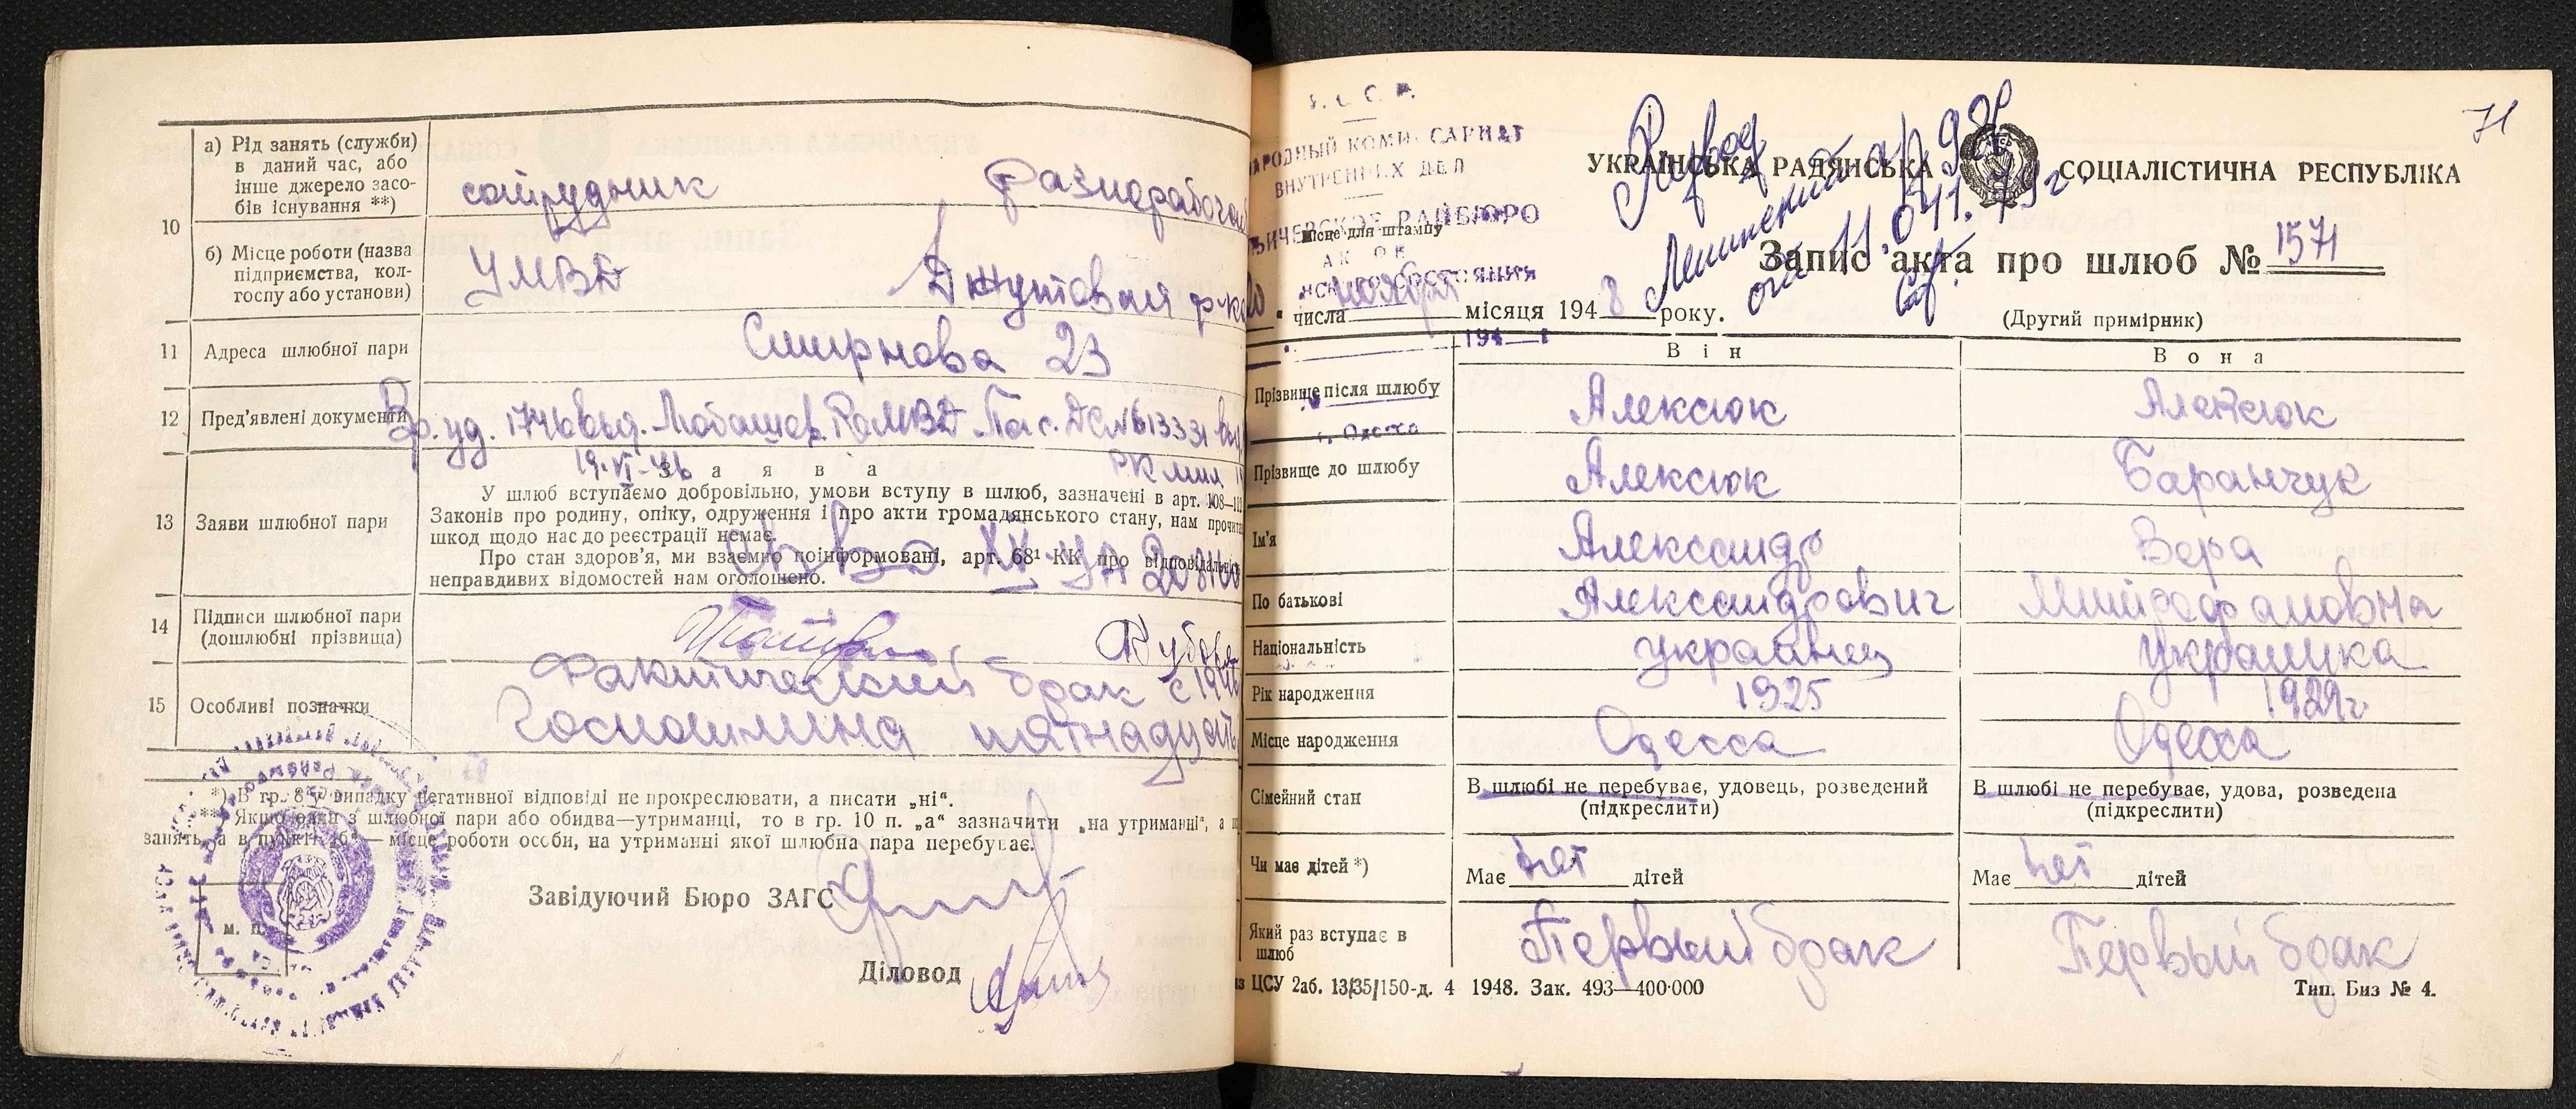 10
а) Рід занять (служби)
в даний час, або
інше джерело засо-
бів існування **)
сотрудник
Разнорабочая
б) Місце роботи (назва
підприємства, кол-
госпу або установи)
УМВД
Джутовая ф-ка
11 Адреса шлюбної пари
Смирнова 23
12 Пред'явлені документи
Вр. уд. 1746 выд. РОМВД Пас.
19-VI-46
13 Заяви шлюбної пари
Заява
У шлюб вступаємо добровільно, умови вступу в шлюб, зазначені в арт. 108—112
Законів про родину, опіку, одруження і про акти громадянського стану, нам прочита
шкод щодо нас до реєстрації немає.
Про стан здоров'я, ми взаємно поінформовані, арт. 68¹ КК про відповідальн
неправдивих відомостей нам оголошено.
14 Підписи шлюбної пари
(дошлюбні прізвища)
15 Особливі позначки
Фактический брак с 194
Госпошлина пятнадцать
*) В гр. 8 у випадку негативної відповіді не прокреслювати, а писати „ні“.
**) Якщо один з шлюбної пари або обидва—утриманці, то в гр. 10 п. „а“ зазначити „на утриманні“, а
занять, а в пункті „б“ — місце роботи особи, на утриманні якої шлюбна пара перебуває.
Завідуючий Бюро ЗАГС
Діловод
М. П.
71
У.С.С.Р.
НАРОДНЫЙ КОМИССАРИАТ
ВНУТРЕННИХ ДЕЛ
РАЙБЮРО
Місце для штампу
г. Одесса
Развод
Ленинский
от 11.041.79 г.
УКРАЇНСЬКА РАДЯНСЬКА СОЦІАЛІСТИЧНА РЕСПУБЛІКА
Запис акта про шлюб № 1571
числа ноября місяця 1948 року.
(Другий примірник)
194 г
Він Вона
Прізвище після шлюбу Алексюк Алексюк
Прізвище до шлюбу Алексюк Баранчук
Ім'я Александр Вера
По батькові Александрович Митрофановна
Національність украинец украинка
Рік народження 1925 1929 г.
Місце народження Одесса Одесса
Сімейний стан В шлюбі не перебуває, удовець, розведений В шлюбі не перебуває, удова, розведена
(підкреслити) (підкреслити)
Чи має дітей *) Має нет дітей Має нет дітей
Який раз вступає в
шлюб
Первый брак Первый брак
ЦСУ 2аб. 13/35/150-д. 4 1948. Зак. 493—400·000 Тип. Биз № 4.